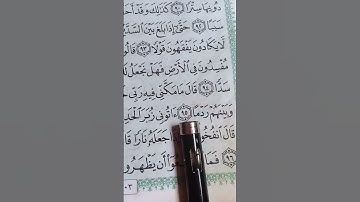 دُونِهَا سِتْرًا ٩٠ كَذَٰلِكَ وَقَدْ أَحَ
سَبَبًا ٩٢ حَتَّىٰٓ إِذَا بَلَغَ بَيْنَ ٱلسَّدَّ
لَّا يَكَادُونَ يَفْقَهُونَ قَوْلًا ٩٣
مُفْسِدُونَ فِى ٱلْأَرْضِ فَهَلْ نَجْعَلُ لَ
سَدًّا ٩٤ قَالَ مَا مَكَّنِّى فِيهِ رَبِّى خَ
وَبَيْنَهُمْ رَدْمًا ٩٥ ءَاتُونِى زُبَرَ ٱلْحَدِ
قَالَ ٱنفُخُوا ذَا جَعَلَهُۥ نَارًا قَا
٩٦ فَمَا عُوٓا۟ أَن يَظْهَرُو
٠٣